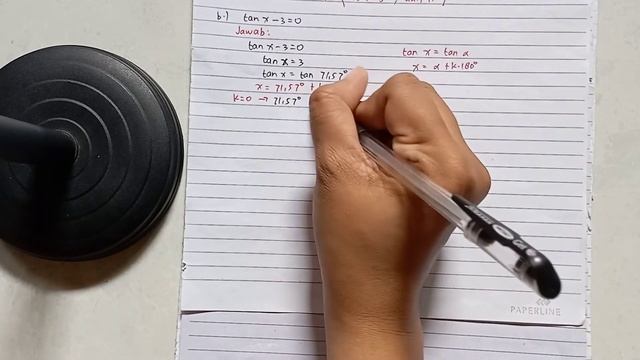 b.) tan x - 3 = 0
Jawab:
tan x - 3 = 0
tan x = 3
tan x = tan 71,57°
x = 71,57° +
k=0 → 71,57°
tan x = tan α
x = α + k·180°
PAPERLINE